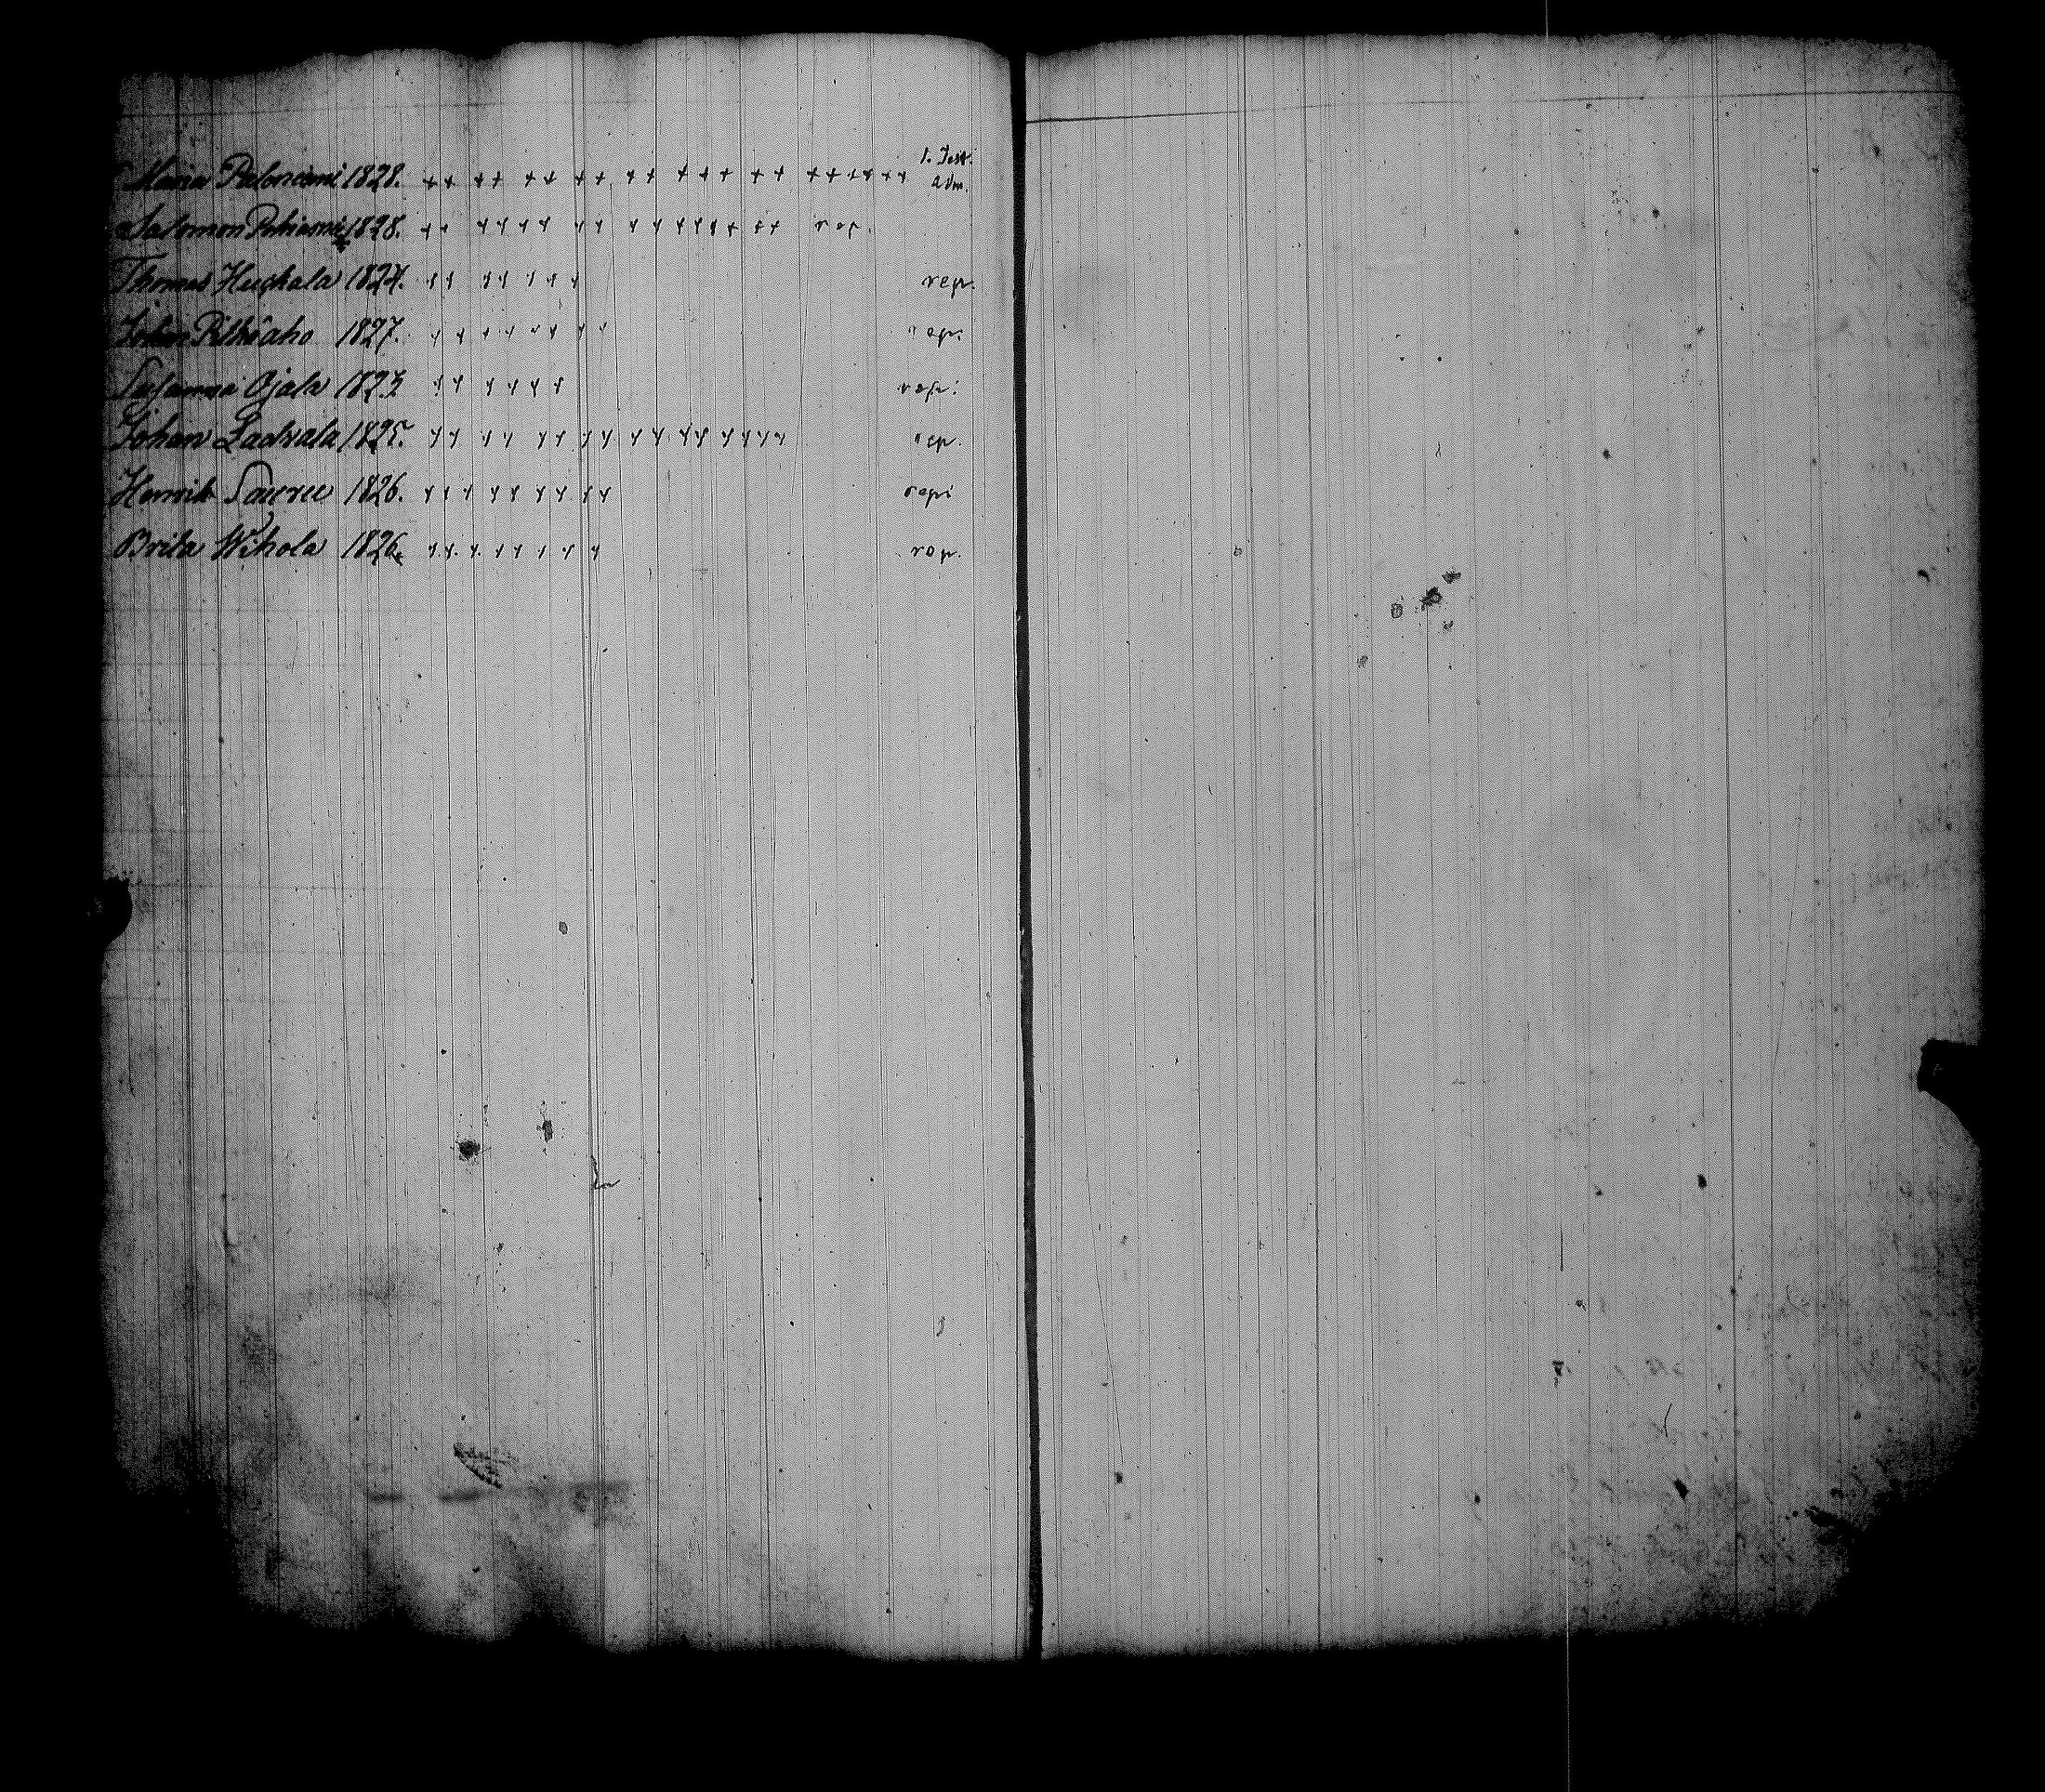 Maria Paloniemi 1828. ++ ++ ++ ++ ++ +++ ++ ++++++ 1. Test. adm.
Salomon 1828. rep.
Thomas Huckala 1824. rep.
Johan Pitkäaho 1827. rep.
Susanna Ojala 1825 rep.
Johan Laakala 1825. rep.
Henrik Sauru 1826. rep.
Brita Wihola 1826. rep.